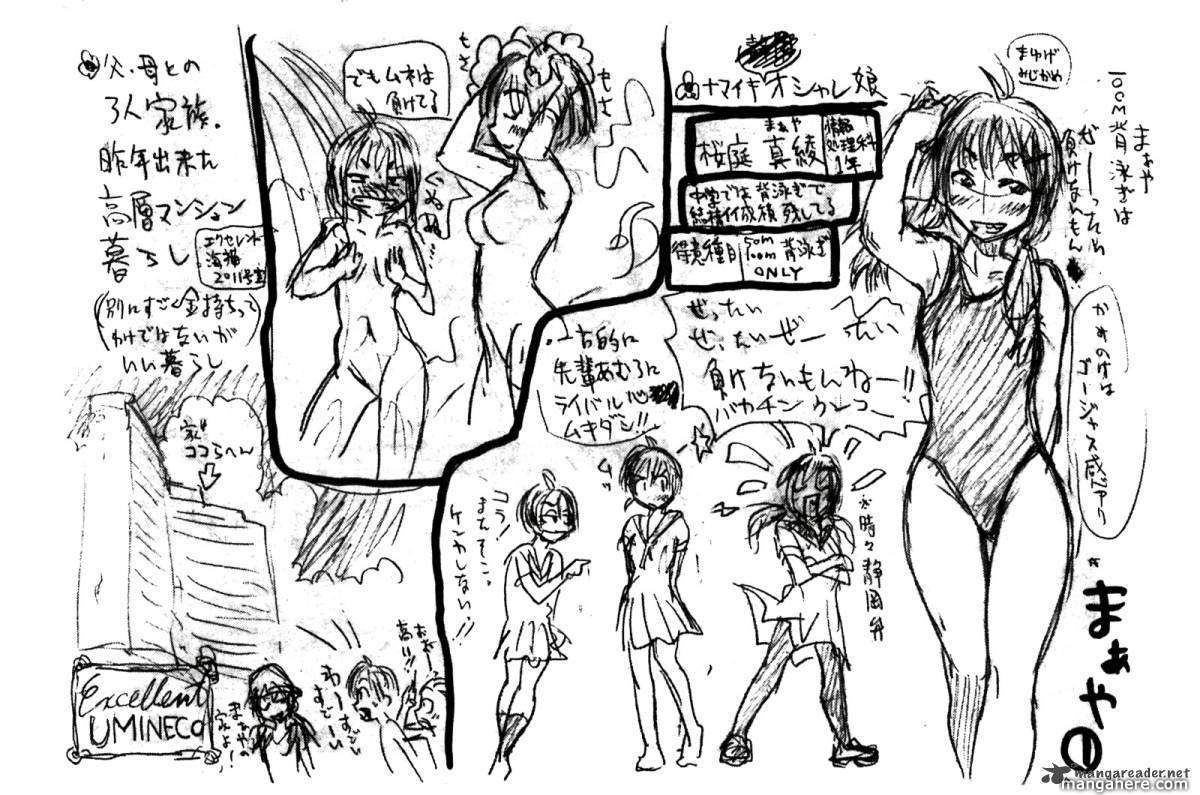 まゆげ
みじかめ
まぁや
100m背泳ぎは
ぜーったい
負けないもん
かみのけは
ゴージャス感やや
*まぁや①
ナマイキオシャレ娘
まあや
桜庭 真綾
情報
処理科
1年
中学では背泳ぎで
結構イイ成績残してる
得意種目
50m
100m背泳ぎ
ONLY
ぜったい
ぜったいぜーったい
負けないもんねー!!
一方的に
先輩あむろに
ライバル心
ムキダシ!!
※時々静岡弁
ムッ
コラ!
またそこっ
ケンカしない!!
もさ
もさ
でもムネは
負けてる
ぐぬぬ
父・母との
3人家族。
昨年出来た
高層マンション
暮らし
エクセレント
海猫
2011号室
(別にすごく金持ちって
わけではないが
いい暮らし
家
ココらへん
Excellent
UMINECO
まぁやの
家よ!
わーすごい
すごーい
おおー
高い!!
mangareader.net
mangahere.com